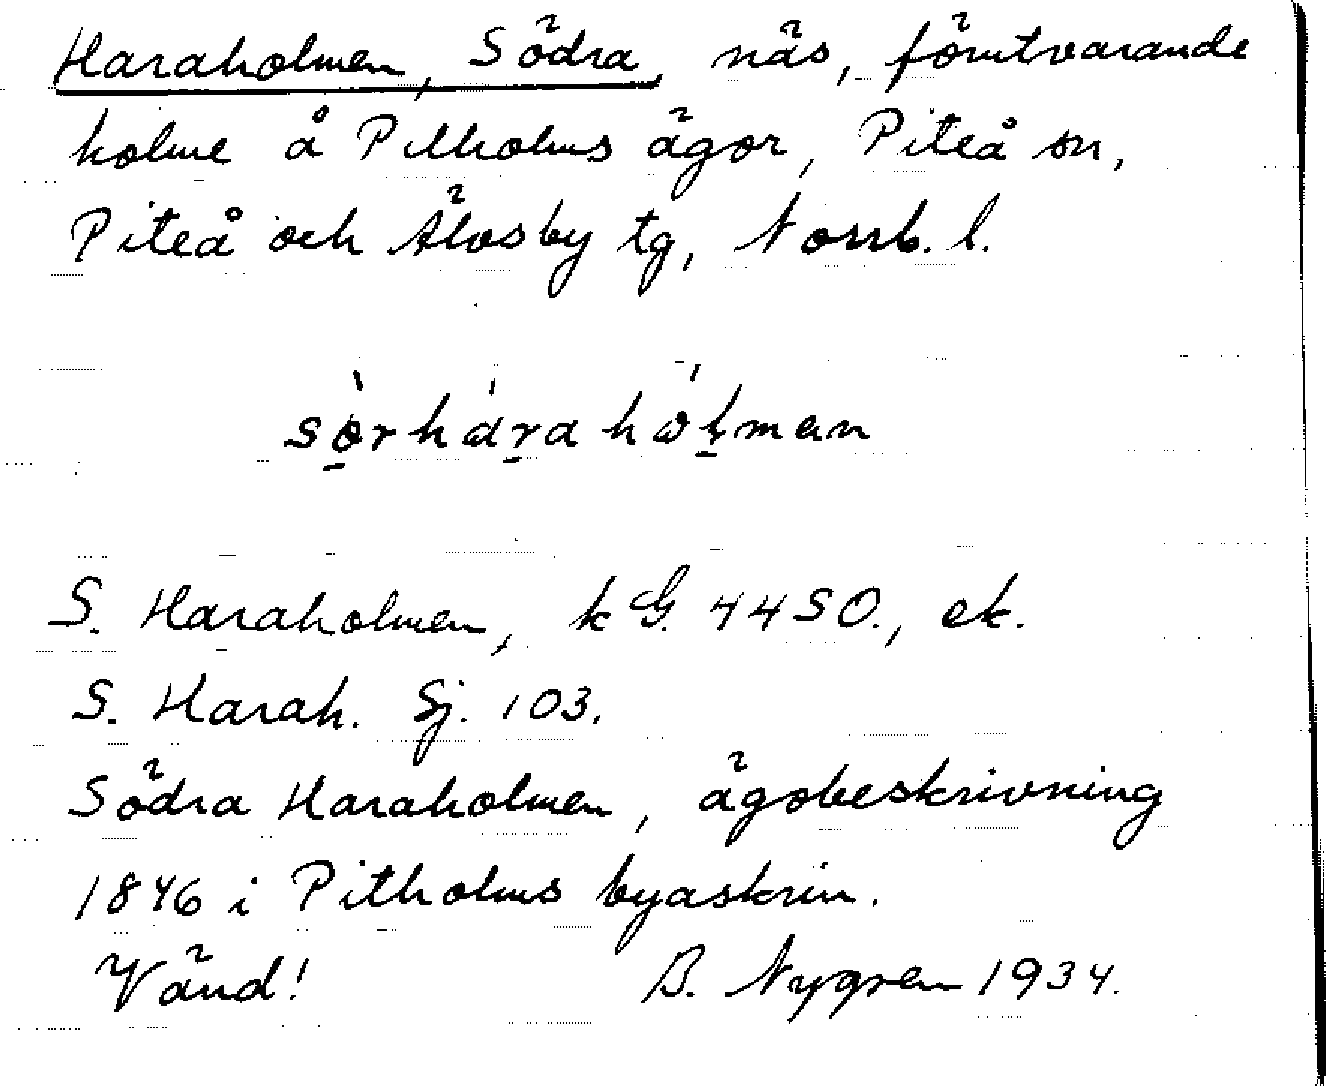 Haraholmen, Södra, näs, förutvarande
holme å Pitholms ägor, Piteå sn,
Piteå och Älvsby tg, Norrb. l.
S. Haraholmen, k G. 44 SO., ek.
S. Harah. Sj. 103.
Södra Haraholmen, ägobeskrivning
1846 i Pitholms byaskrin.
Vänd! B. Nygren 1934.